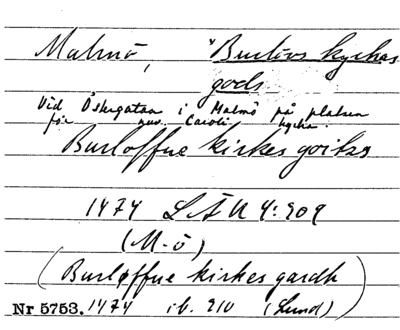 Malmö, *Burlövs kyrkas
gods
Vid Östergatan i Malmö på platsen
för nuv. Caroli kyrka.
Burloffue kirkes goitzs
1474 LÄU 4: 209
(M-ö)
(Burløffue kirkes gardh)
Nr 5753. 1474 ib. 210 (Lund)